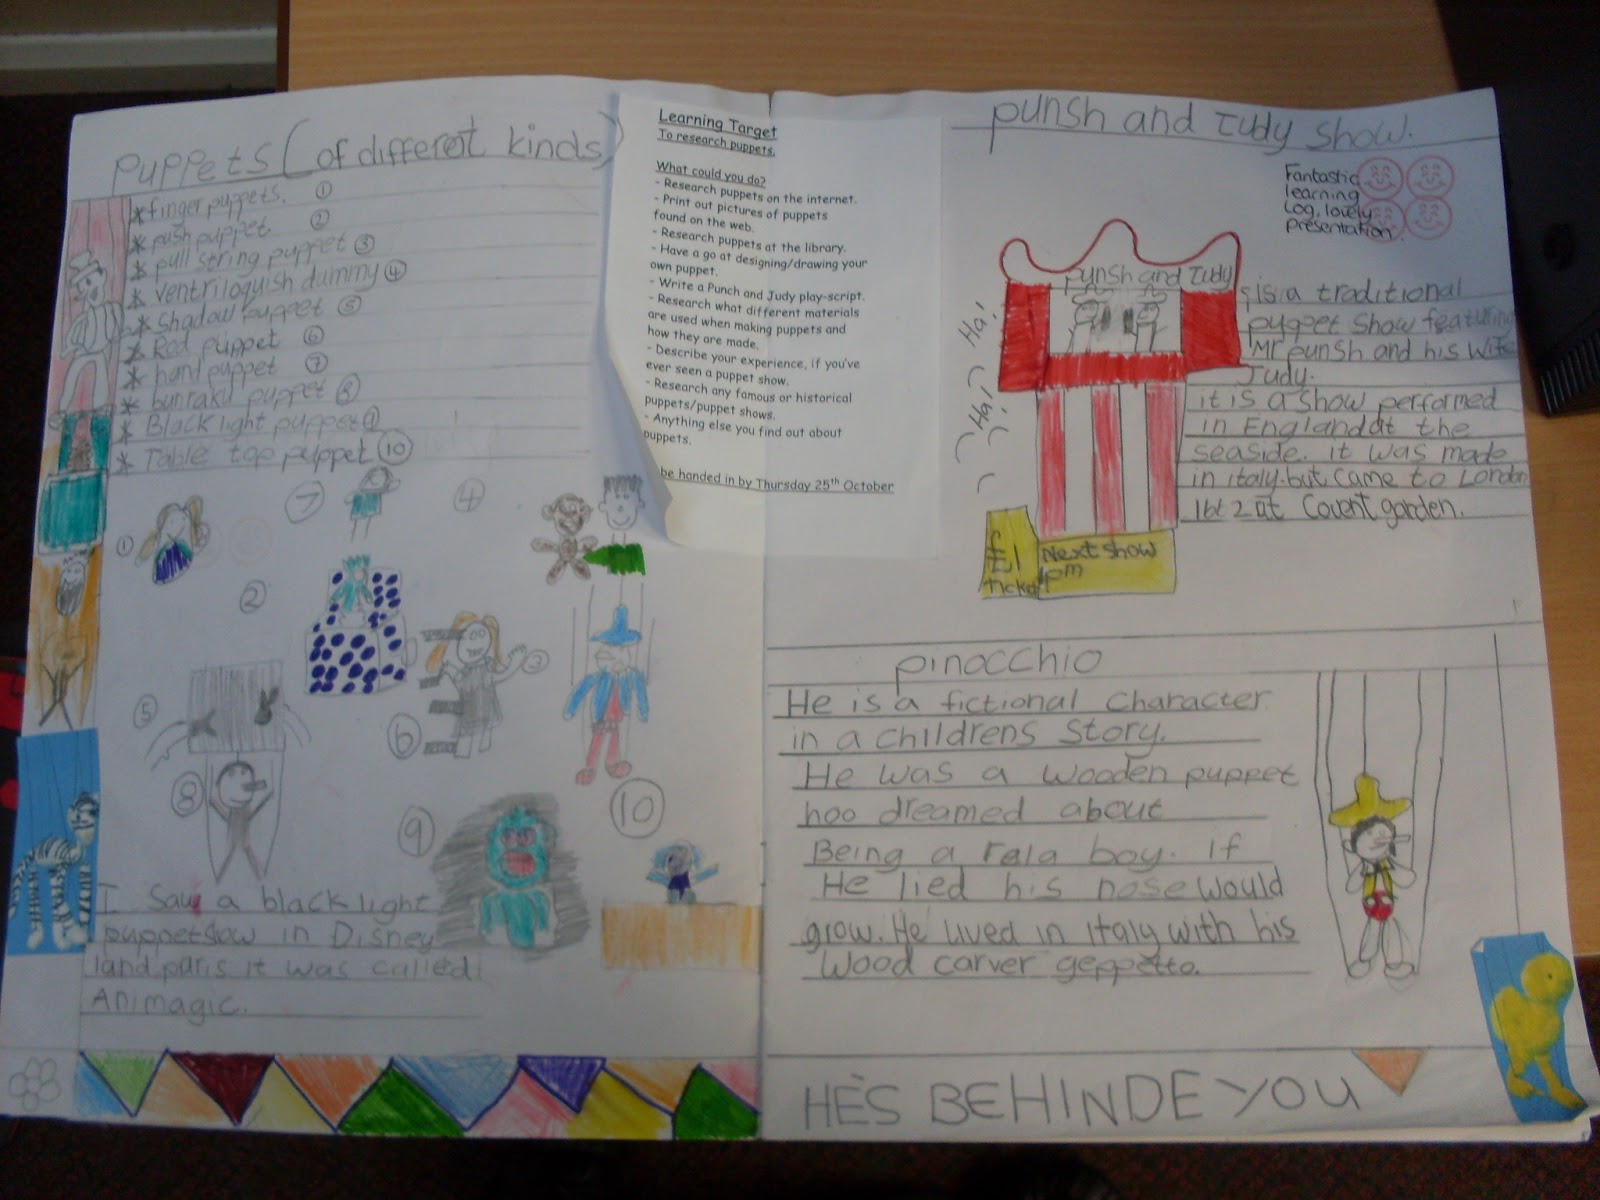 puppets (of different kinds)
* finger puppets. 1
* push puppet 2
* pull string puppet 3
* ventriloquish dummy 4
* Shadow puppet 5
* Rod puppet 6
* hand puppet 7
* bunraku puppet 8
* Black light puppet 9
* Table top puppet 10
7
4
1
2
3
5
6
8
9
10
I Saw a black light
puppet show in Disney
land paris it was called
Animagic.
Learning Target
To research puppets.
What could you do?
- Research puppets on the internet.
- Print out pictures of puppets
found on the web.
- Research puppets at the library.
- Have a go at designing/drawing your
own puppet.
- Write a Punch and Judy play-script.
- Research what different materials
are used when making puppets and
how they are made.
- Describe your experience, if you've
ever seen a puppet show.
- Research any famous or historical
puppets/puppet shows.
- Anything else you find out about
puppets.
be handed in by Thursday 25th October
punsh and Judy show.
Fantastic
learning
Log, lovely
presentation.
punsh and Judy
Ha!
Ha!
is a traditional
puppet Show featuring
Mr punsh and his Wife
Judy.
it is a show performed
in England at the
seaside. it was made
in italy. but came to London
1662 at Covent garden.
£1
Ticket
Next show
1pm
pinocchio
He is a fictional Character
in a childrens Story.
He was a wooden puppet
hoo dreamed about
Being a rela boy. if
He lied his nose would
grow. He lived in italy with his
Wood carver geppetto.
HE'S BEHINDE YOU